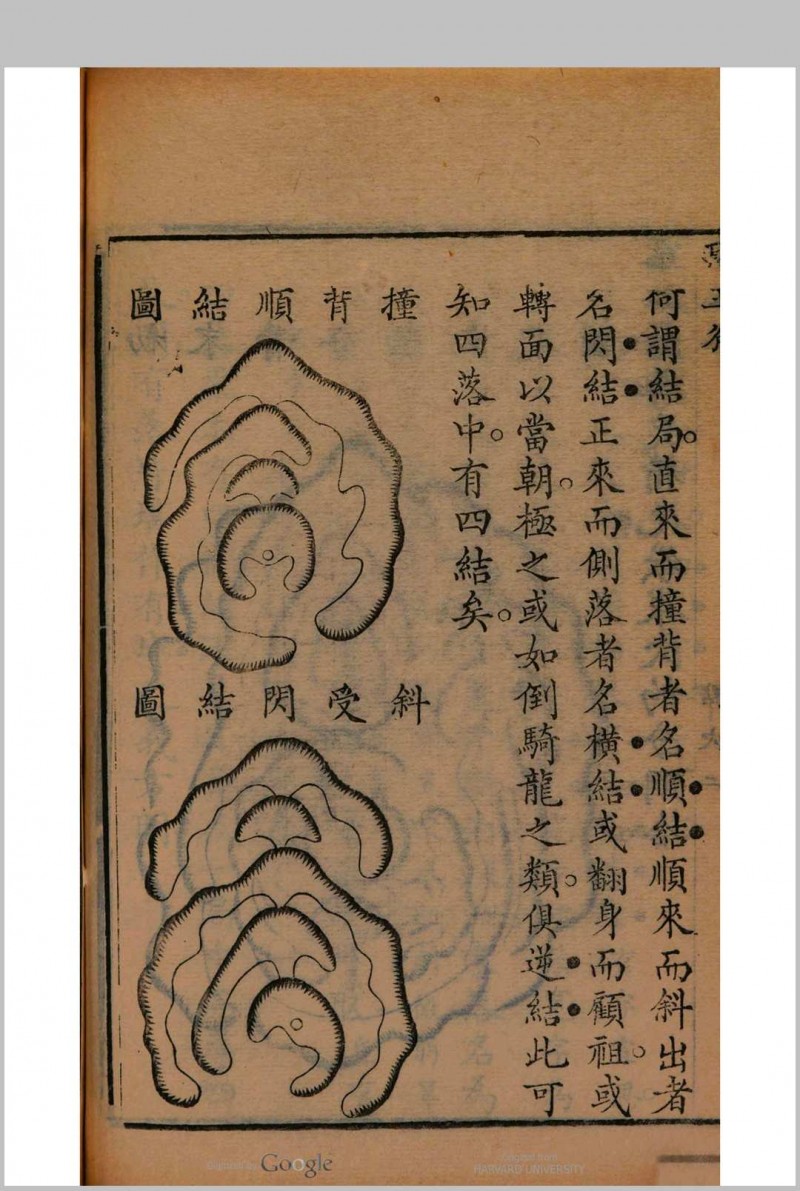 何謂結局直來而撞背者名順結順來而斜出者
名閃結正來而側落者名橫結或翻身而顧祖或
轉面以當朝極之或如倒騎龍之類俱逆結此可
知四落中有四結矣
撞背順結圖
斜受閃結圖
Google
HARVARD UNIVERSITY